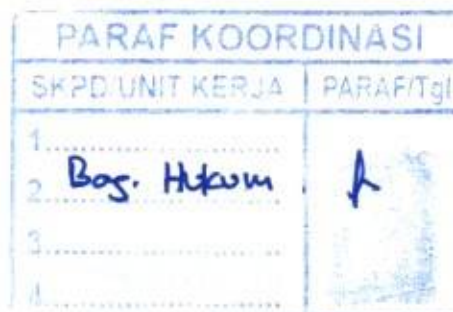 PARAF KOORDINASI
SKPD/UNIT KERJA PARAF/Tgl
1..........................
2 Bag. Hukum
3..........................
4..........................